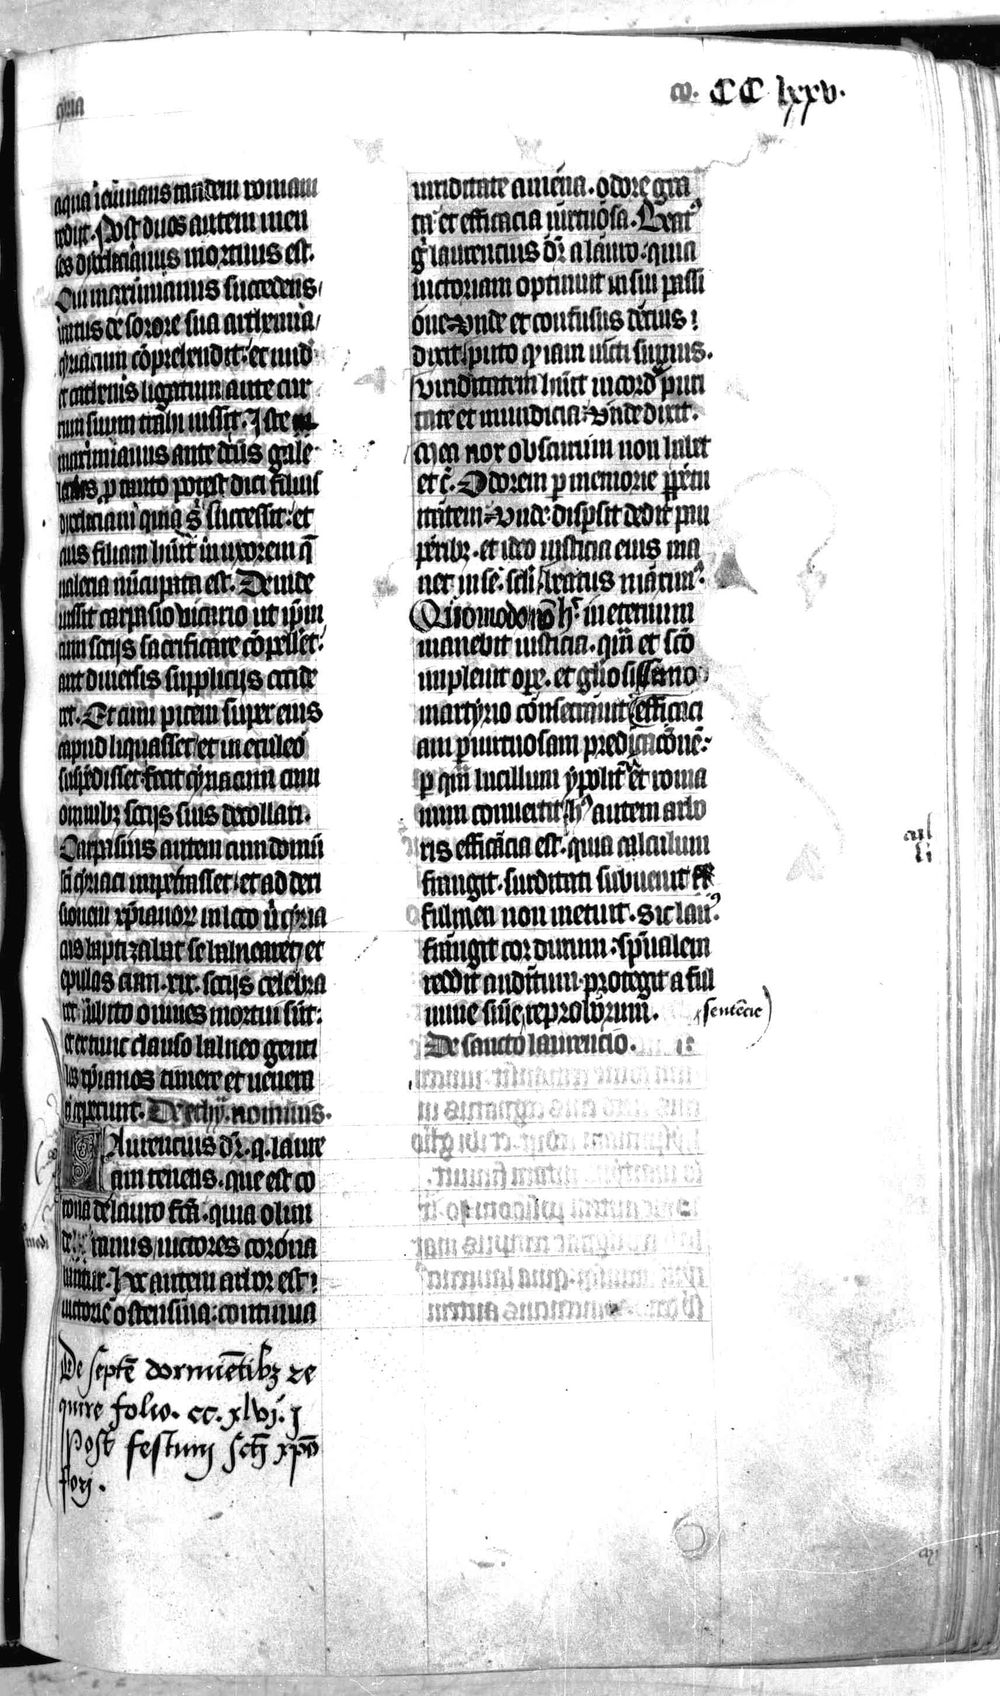 cyria
co. CC lxxv.
aqua ieiunans tandem romam
rediit. Post duos autem men
ses dyoclecianus mortuus est.
Cui maximianus succedens
iratus de sorore sua arthemia
cyriacum cõprehendit: et nudũ
et cathenis ligatum ante cur
rum suum trahi iussit. Iste
maximianus ante dcũs gale
p tanto potest dici filius
dyocleciani quia ei successit: et
eius filiam hũit in uxorem q̃
ualeria nũcupata est. Deinde
iussit carpasio vicario ut ip̃m
cum socijs sacrificare cõpelleret:
aut diuersis supplicijs occide
ret. Et cum picem super eius
caput liquasset et in eculeo
suspẽdisset fecit cyriacum cum
omnibꝫ socijs suis decollari.
Carpasius autem cum domũ
sci cyriaci impetrasset: et ad deri
sionem xp̃ianorꝝ in loco ubi cyria
cus baptizabat se balnearet et
epulas cum .xix. socijs celebra
ret subito omnes mortui sũt:
et ex tunc clauso balneo genti
les xp̃ianos timere et uenera
ri ceperunt. De ethy. nominis.
Laurencius dr̃. q. laure
am tenens. que est co
rona de lauro fcã. quia olim
uictores corona
bantur. Hec autem arbor est
uictorie ostensiua: continua
De septẽ dormiẽtibꝫ re
quire folio. cc. xlvj. j
post festum Scti xpõ
fori.
uiriditate amena. odore gra
ta et efficacia uirtuosa. Beatꝰ
g̊ laurencius dr̃ a lauro: quia
uictoriam optinuit in sui passi
one. Unde et confusus decius
dixit. puto q̃ iam uicti sumus.
Uiriditatem hũit in cordꝭ puri
tate et mundicia. Unde dixit.
Mea nox obscurum non habet
et c̃. Odorem p memorie ppetu
itatem. Unde: dispersit dedit pau
peribꝫ. et ideo iusticia eius ma
net in se. scłi. beatus maximꝰ.
Quomodo nõ hꝰ. in eternum
manebit iusticia. quã et scõ
impleuit opere. et gl̃iosissimo
martyrio consecrauit efficaci
am p uirtuosam predicacõnẽ.
p quã lucillum ypolitũ et roma
num conuertit. hꝰ autem arbo
ris efficacia est. quia calculum
frangit. surditati subuenit
fulmen non metuit. Sic laũꝰ.
frangit cor durum: sp̃ualem
reddit auditum. protegit a ful
mine sũe reproborum.
sentẽcie
De sancto laurencio.